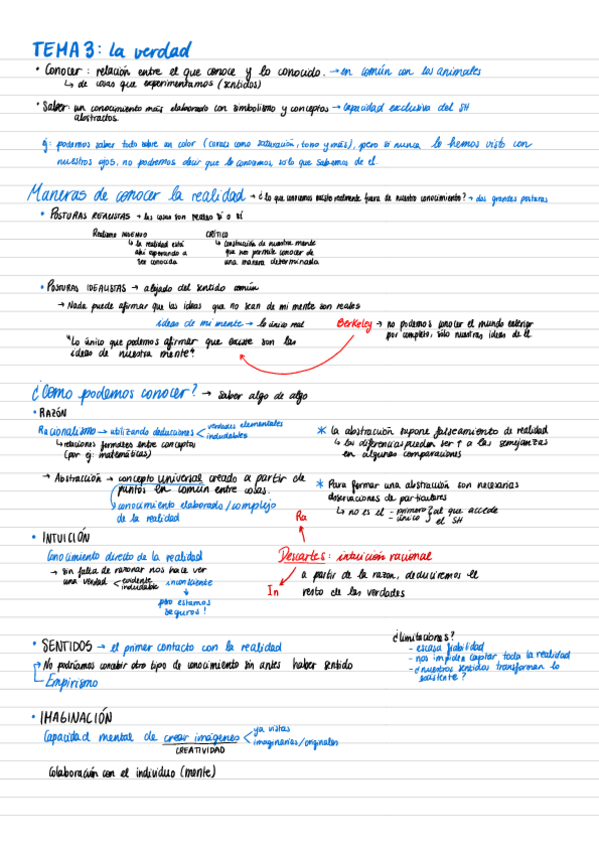 TEMA 3: la verdad
• Conocer: relación entre el que conoce y lo conocido. → en común con los animales
↳ de cosas que experimentamos (sentidos)
• Saber: un conocimiento más elaborado con simbolismo y conceptos → capacidad exclusiva del SH
abstractos.
ej: podemos saber todo sobre un color (cosas como saturación, tono y más), pero si nunca lo hemos visto con
nuestros ojos, no podremos decir que lo conocemos, solo que sabemos de el.
Maneras de conocer la realidad → ¿lo que conocemos existe realmente fuera de nuestro conocimiento? → dos grandes posturas
• POSTURAS REALISTAS → las cosas son reales sí o sí
Realismo INGENUO
↳ la realidad está
ahí esperando a
ser conocida
CRÍTICO
↳ construcción de nuestra mente
que nos permite conocer de
una manera determinada
• POSTURAS IDEALISTAS → alejado del sentido común
→ Nada puede afirmar que las ideas que no sean de mi mente son reales
ideas de mi mente → lo único real
Berkeley → no podemos conocer el mundo exterior
por completo, sólo nuestras ideas de él
"Lo único que podemos afirmar que existe son las
ideas de nuestra mente"
¿Cómo podemos conocer? → saber algo de algo
• RAZÓN
Racionalismo → utilizando deducciones < verdades elementales
indudables
↳ relaciones formales entre conceptos
(por ej: matemáticas)
* la abstracción supone falseamiento de realidad
↳ las diferencias pueden ser ↑ a las semejanzas
en algunas comparaciones
→ Abstracción → concepto universal creado a partir de
puntos en común entre cosas.
↳ conocimiento elaborado/complejo
de la realidad
* Para formar una abstracción son necesarias
observaciones de particulares
↳ no es el - primero
- único } al que accede
el SH
• INTUICIÓN
Conocimiento directo de la realidad
→ sin falta de razonar nos hace ver
una verdad < evidente
indudable
inconsciente
↓
pero estamos
seguros!
Ra
Descartes: intuición racional
In
a partir de la razón, deduciremos el
resto de las verdades
• SENTIDOS → el primer contacto con la realidad
→ No podríamos concebir otro tipo de conocimiento sin antes haber sentido
Empirismo
¿limitaciones?
- escasa fiabilidad
- nos impiden captar toda la realidad
- ¿nuestros sentidos transforman lo
existente?
• IMAGINACIÓN
Capacidad mental de crear imágenes < ya vistas
imaginarias/originales
CREATIVIDAD
Colaboración con el individuo (mente)